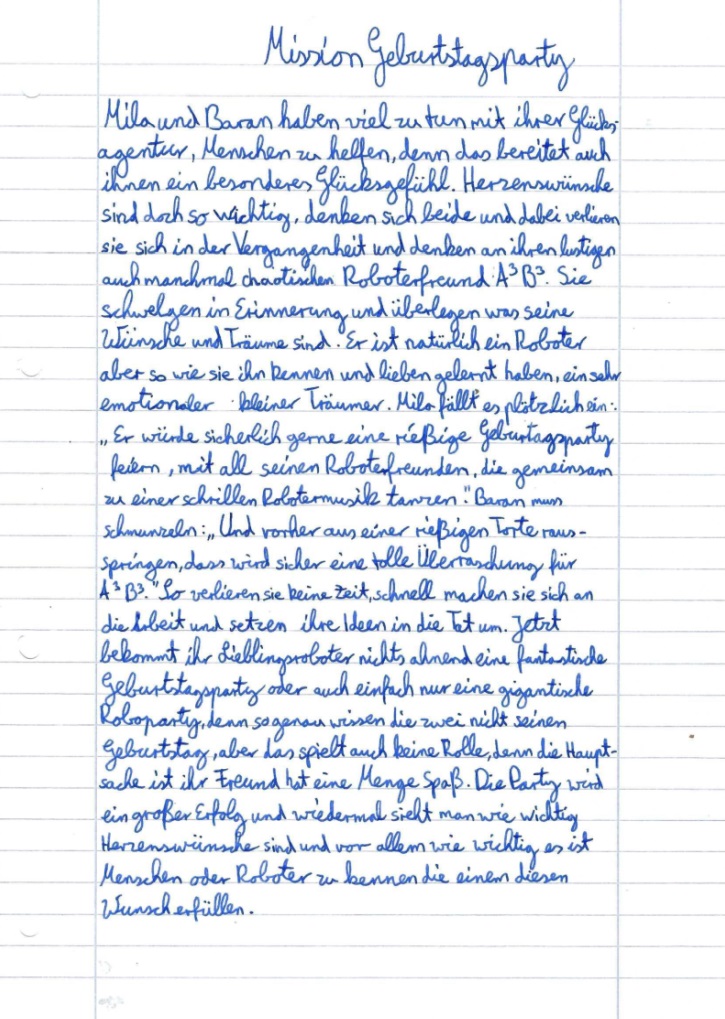 Mission Geburtstagsparty
Mila und Baran haben viel zu tun mit ihrer Glücks-
agentur, Menschen zu helfen, denn das bereitet auch
ihnen ein besonderes Glücksgefühl. Herzenswünsche
sind doch so wichtig, denken sich beide und dabei verlieren
sie sich in der Vergangenheit und denken an ihren lustigen
auch manchmal chaotischen Roboterfreund A³B³. Sie
schwelgen in Erinnerung und überlegen was seine
Wünsche und Träume sind. Er ist natürlich ein Roboter
aber so wie sie ihn kennen und lieben gelernt haben, ein sehr
emotionaler kleiner Träumer. Mila fällt es plötzlich ein:
„Er würde sicherlich gerne eine rießige Geburtagsparty
feiern, mit all seinen Roboterfreunden, die gemeinsam
zu einer schrillen Robotermusik tanzen." Baran muss
schmunzeln: „Und vorher aus einer rießigen Torte raus-
springen, dass wird sicher eine tolle Überraschung für
A³B³." So verlieren sie keine Zeit, schnell machen sie sich an
die Arbeit und setzen ihre Ideen in die Tat um. Jetzt
bekommt ihr Lieblingsroboter nichts ahnend eine fantastische
Geburtstagsparty oder auch einfach nur eine gigantische
Roboparty, denn so genau wissen die zwei nicht seinen
Geburtstag, aber das spielt auch keine Rolle, denn die Haupt-
sache ist ihr Freund hat eine Menge Spaß. Die Party wird
ein großer Erfolg und wiedermal sieht man wie wichtig
Herzenswünsche sind und vor allem wie wichtig es ist
Menschen oder Roboter zu kennen die einem diesen
Wunsch erfüllen.